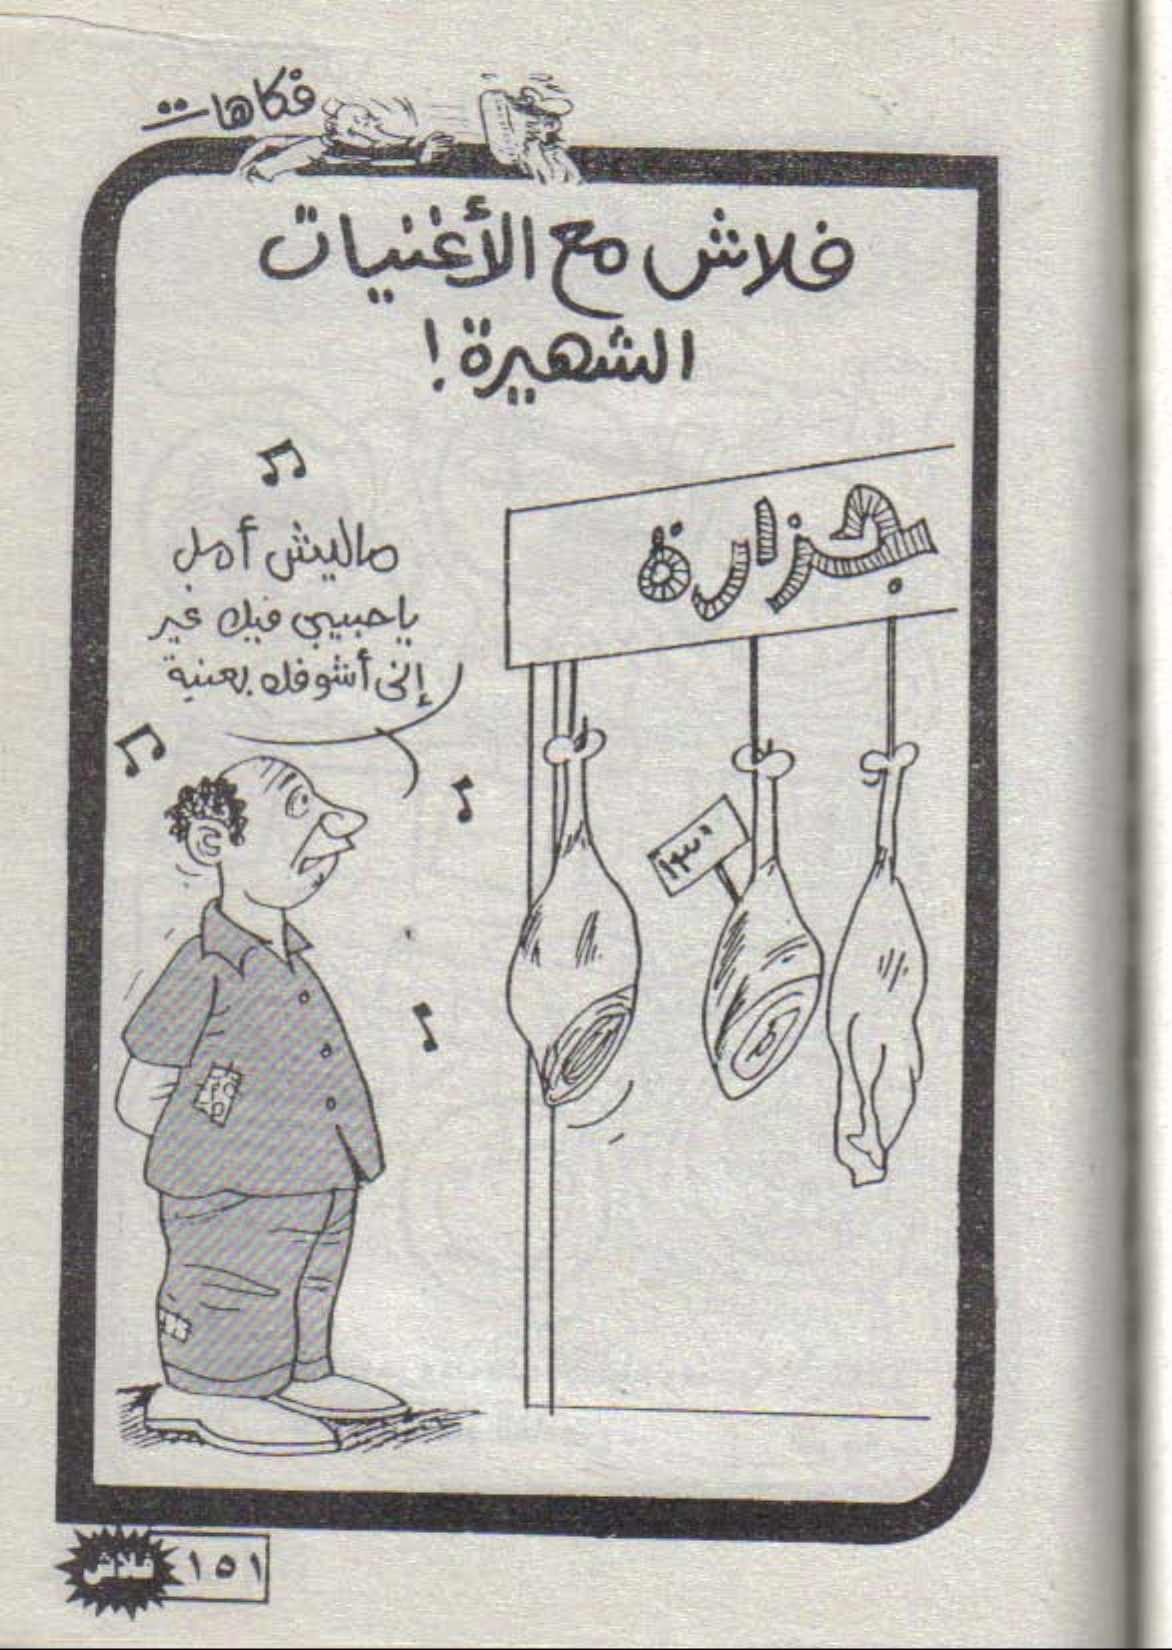 فكاهات
فلاش مع الأغنيات
الشهيرة!
ماليش أمل
ياحبيبي فيك غير
إني أشوفك بعنية
جزارة
فلاش
١٥١